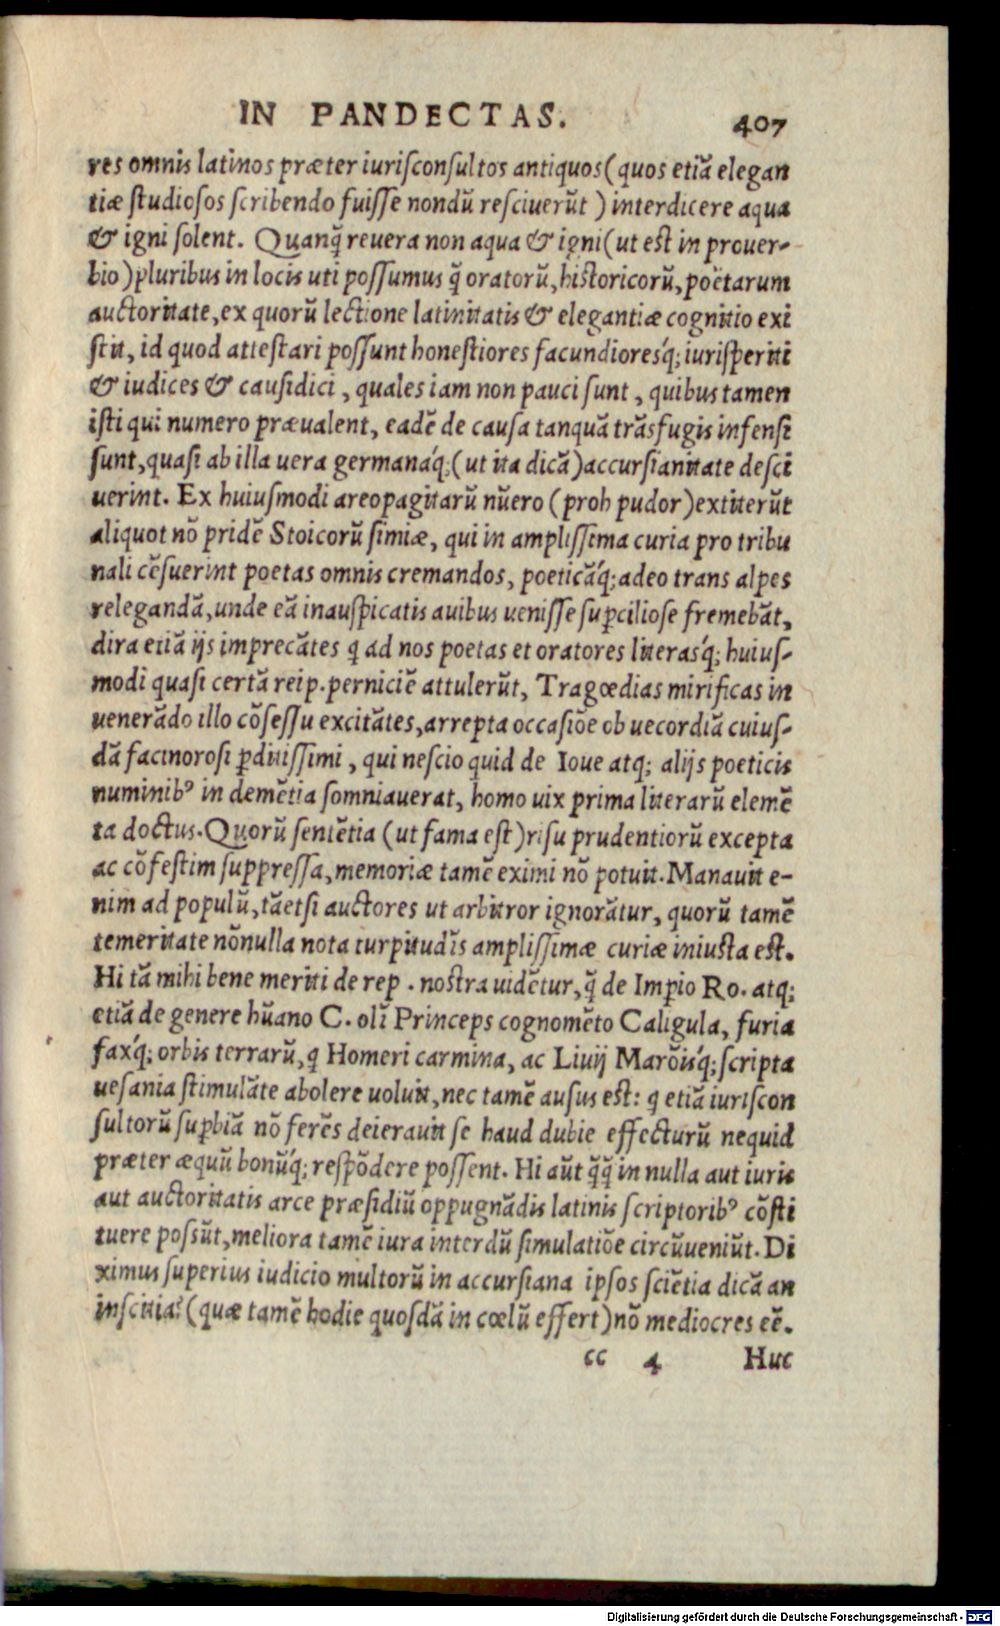 IN PANDECTAS. 407
res omnis latinos præter iurisconsultos antiquos (quos etiã elegan
tiæ studiosos scribendo fuisse nondũ resciuerũt) interdicere aqua
& igni solent. Quanq̃ reuera non aqua & igni (ut est in prouer-
bio) pluribus in locis uti possumus q̃ oratorũ, historicorũ, poëtarum
auctoritate, ex quorũ lectione latinitatis & elegantiæ cognitio exi
stit, id quod attestari possunt honestiores facundioresq́; iurisperiti
& iudices & causidici, quales iam non pauci sunt, quibus tamen
isti qui numero præualent, eadẽ de causa tanquã trãsfugis infensi
sunt, quasi ab illa uera germanaq́; (ut ita dicã) accursianitate desci
uerint. Ex huiusmodi areopagitarũ nũero (proh pudor) extiterũt
aliquot nõ pridẽ Stoicorũ simiæ, qui in amplissima curia pro tribu
nali cẽsuerint poetas omnis cremandos, poeticãq́; adeo trans alpes
relegandã, unde eã inauspicatis auibus uenisse sup̱ciliose fremebãt,
dira etiã ijs imprecãtes q ad nos poetas et oratores literasq́; huius-
modi quasi certã reip. perniciẽ attulerũt, Tragœdias mirificas in
uenerãdo illo cõsessu excitãtes, arrepta occasiõe ob uecordiã cuius-
dã facinorosi p̱ditissimi, qui nescio quid de Ioue atq; alijs poeticis
numinibꝰ in demẽtia somniauerat, homo uix prima literarũ elemẽ
ta doctus. Quorũ sentẽtia (ut fama est) risu prudentiorũ excepta
ac cõfestim suppressa, memoriæ tamẽ eximi nõ potuit. Manauit e-
nim ad populũ, tãetsi auctores ut arbitror ignorãtur, quorũ tamẽ
temeritate nõnulla nota turpitudĩs amplissimæ curiæ iniusta est.
Hi tã mihi bene meriti de rep. nostra uidẽtur, q̃ de Imp̱io Ro. atq;
etiã de genere hũano C. olĩ Princeps cognomẽto Caligula, furia
faxq́; orbis terrarũ, q Homeri carmina, ac Liuij Marõisq́; scripta
uesania stimulãte abolere uoluit, nec tamẽ ausus est: q etiã iuriscon
sultorũ sup̱biã nõ ferẽs deierauit se haud dubie effecturũ nequid
præter æquũ bonũq́; respõdere possent. Hi aũt q̃q̃ in nulla aut iuris
aut auctoritatis arce præsidiũ oppugnãdis latinis scriptoribꝰ cõsti
tuere possũt, meliora tamẽ iura interdũ simulatiõe circũueniũt. Di
ximus superius iudicio multorũ in accursiana ipsos sciẽtia dicã an
inscitia? (quæ tamẽ hodie quosdã in cœlũ effert) nõ mediocres eẽ.
cc 4 Huc
Digitalisierung gefördert durch die Deutsche Forschungsgemeinschaft - DFG